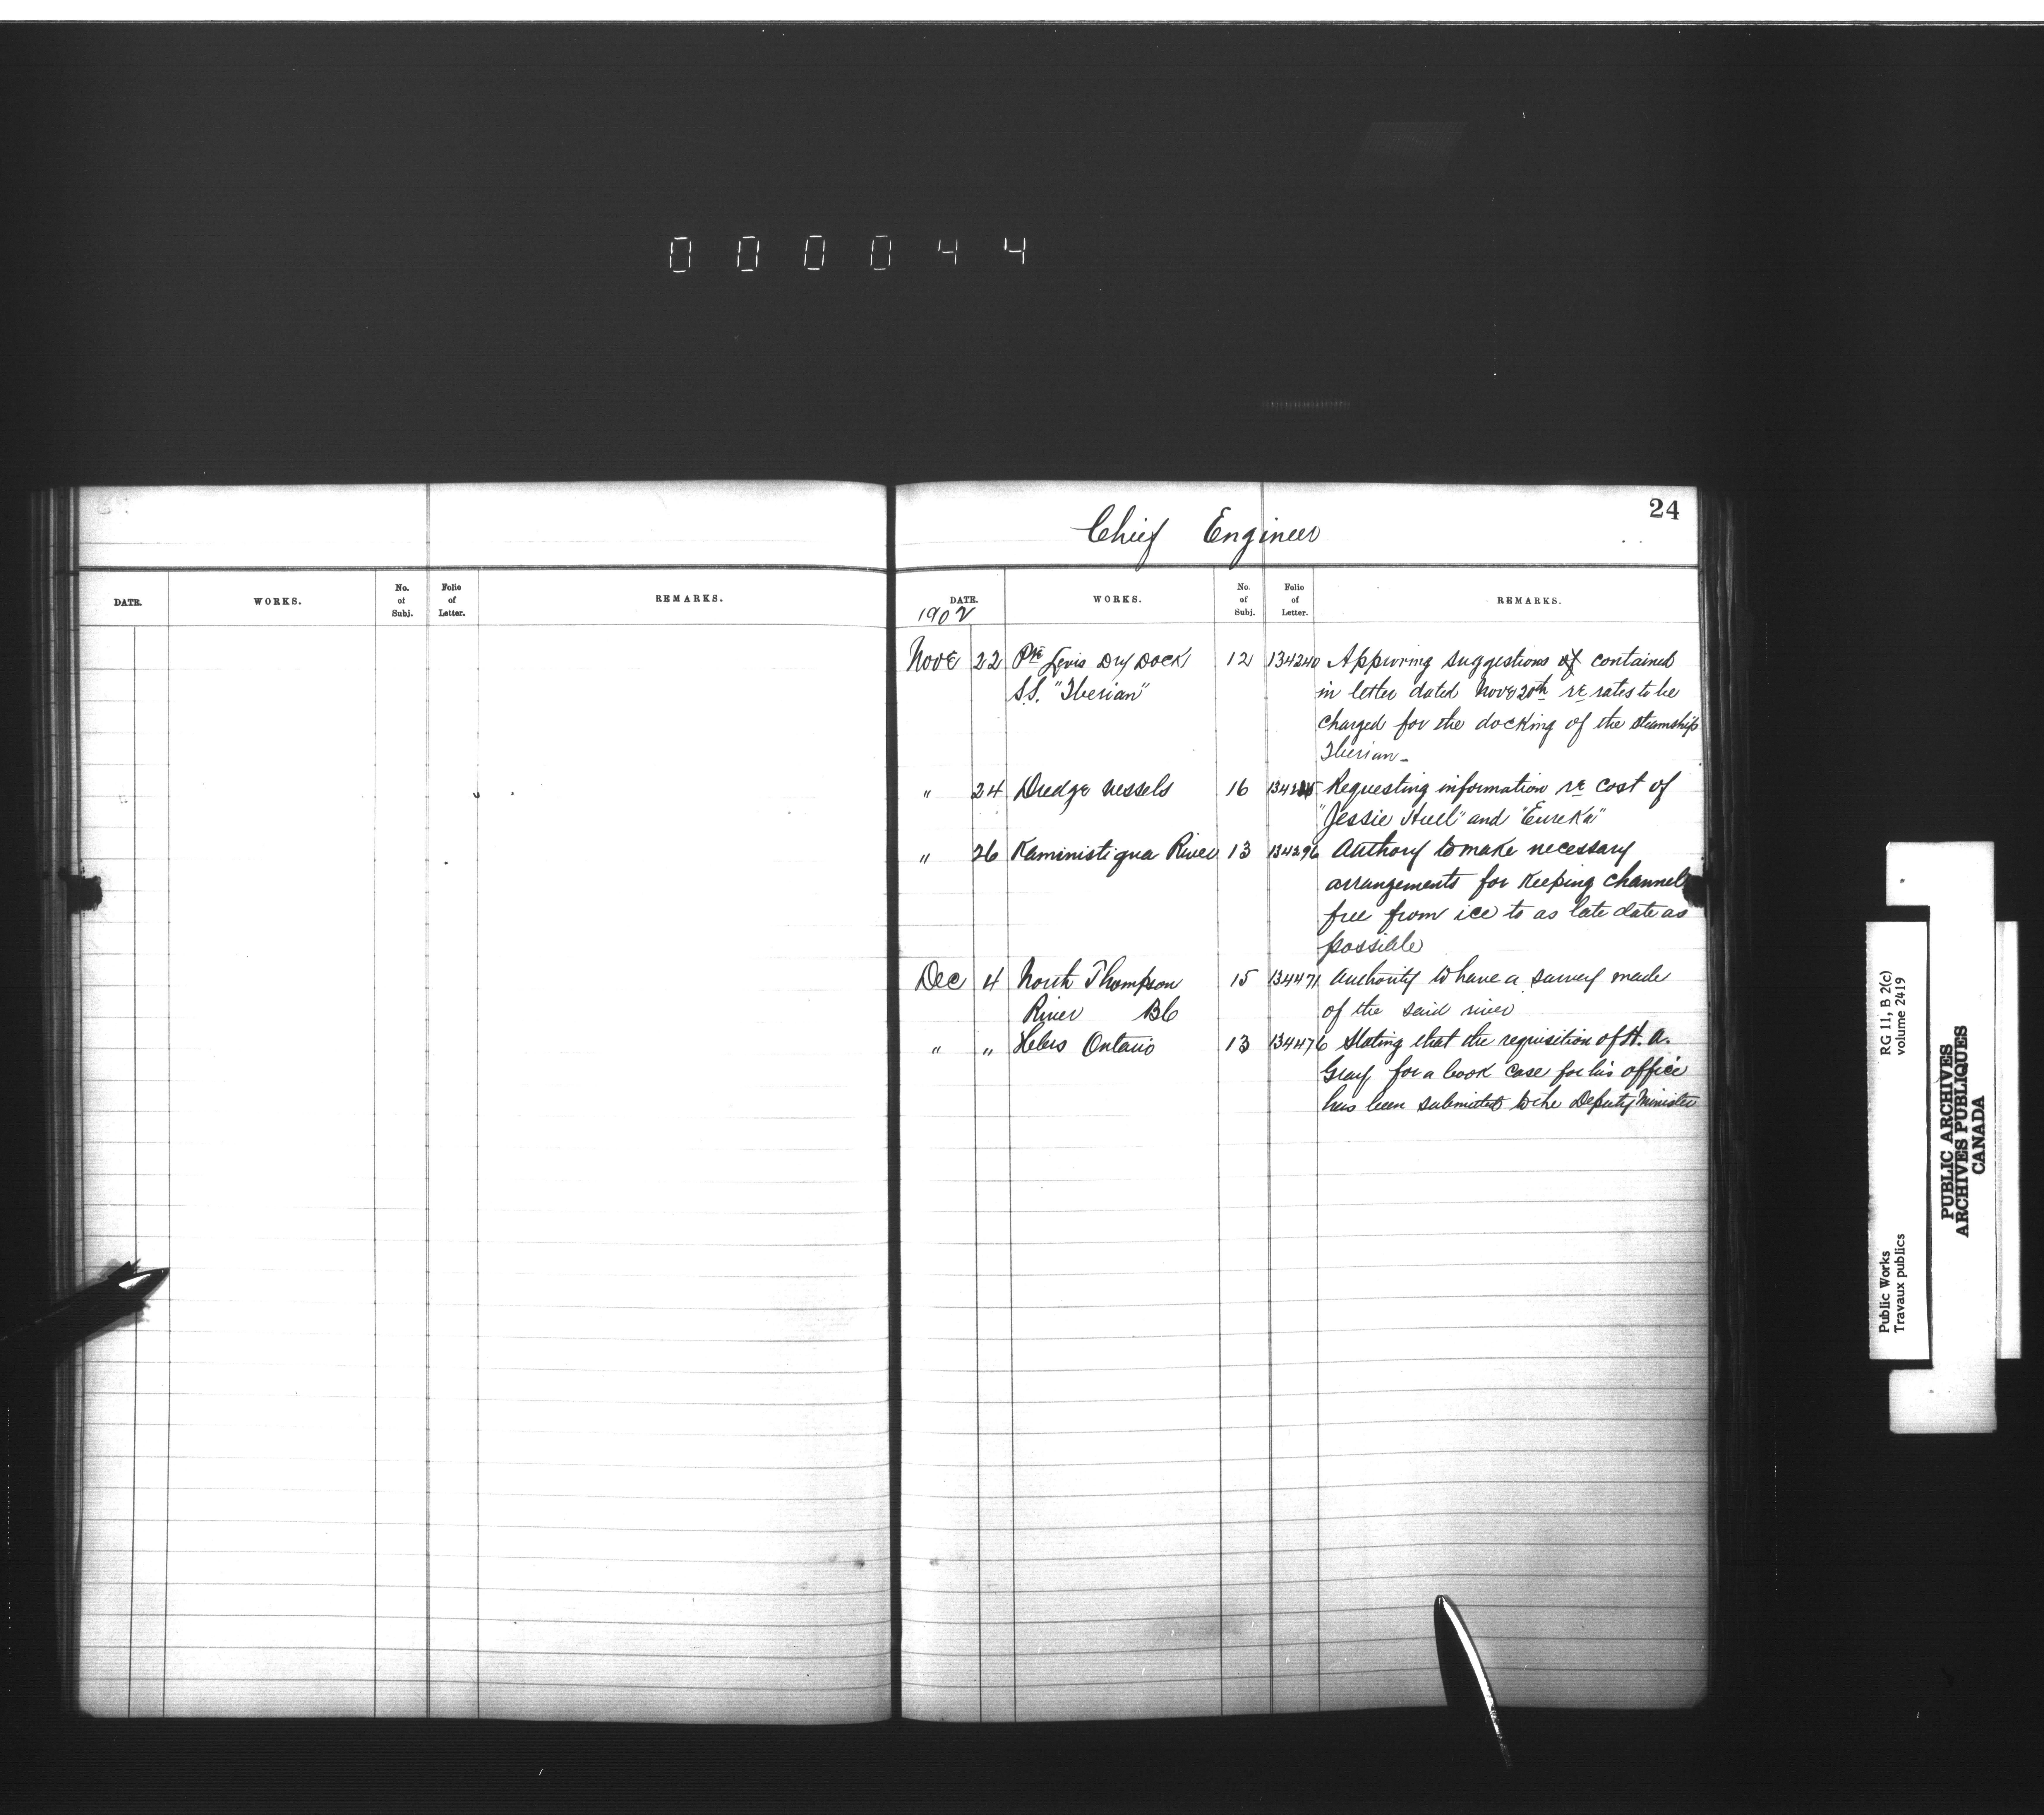 000044
24
Chief Engineer
DATE. WORKS. No. of Subj. Folio of Letter. REMARKS.
DATE. WORKS. No. of Subj. Folio of Letter. REMARKS.
1902
Nove 22 Pte Levis Dry Dock 12 134240 Approving suggestions of contained
S.S. "Iberian" in letter dated Nove 20th re rates to be
charged for the docking of the steamship
Iberian_
" 24 Dredge vessels 16 Requesting information re cost of
"Jessie Huel" and "Eureka"
" 26 Kaministiqua River 13 134296 Authory to make necessary
arrangements for keeping channel
free from ice to as late date as
possible
Dec 4 North Thompson 15 134471 Authority to have a survey made
River BC of the said river
" " Ontario 13 134476 Stating that the requisition of H. A.
Gray for a book case for his office
has been submitted to the Deputy Minister
Public Works
Travaux publics
RG 11, B 2(c)
volume 2419
PUBLIC ARCHIVES
ARCHIVES PUBLIQUES
CANADA